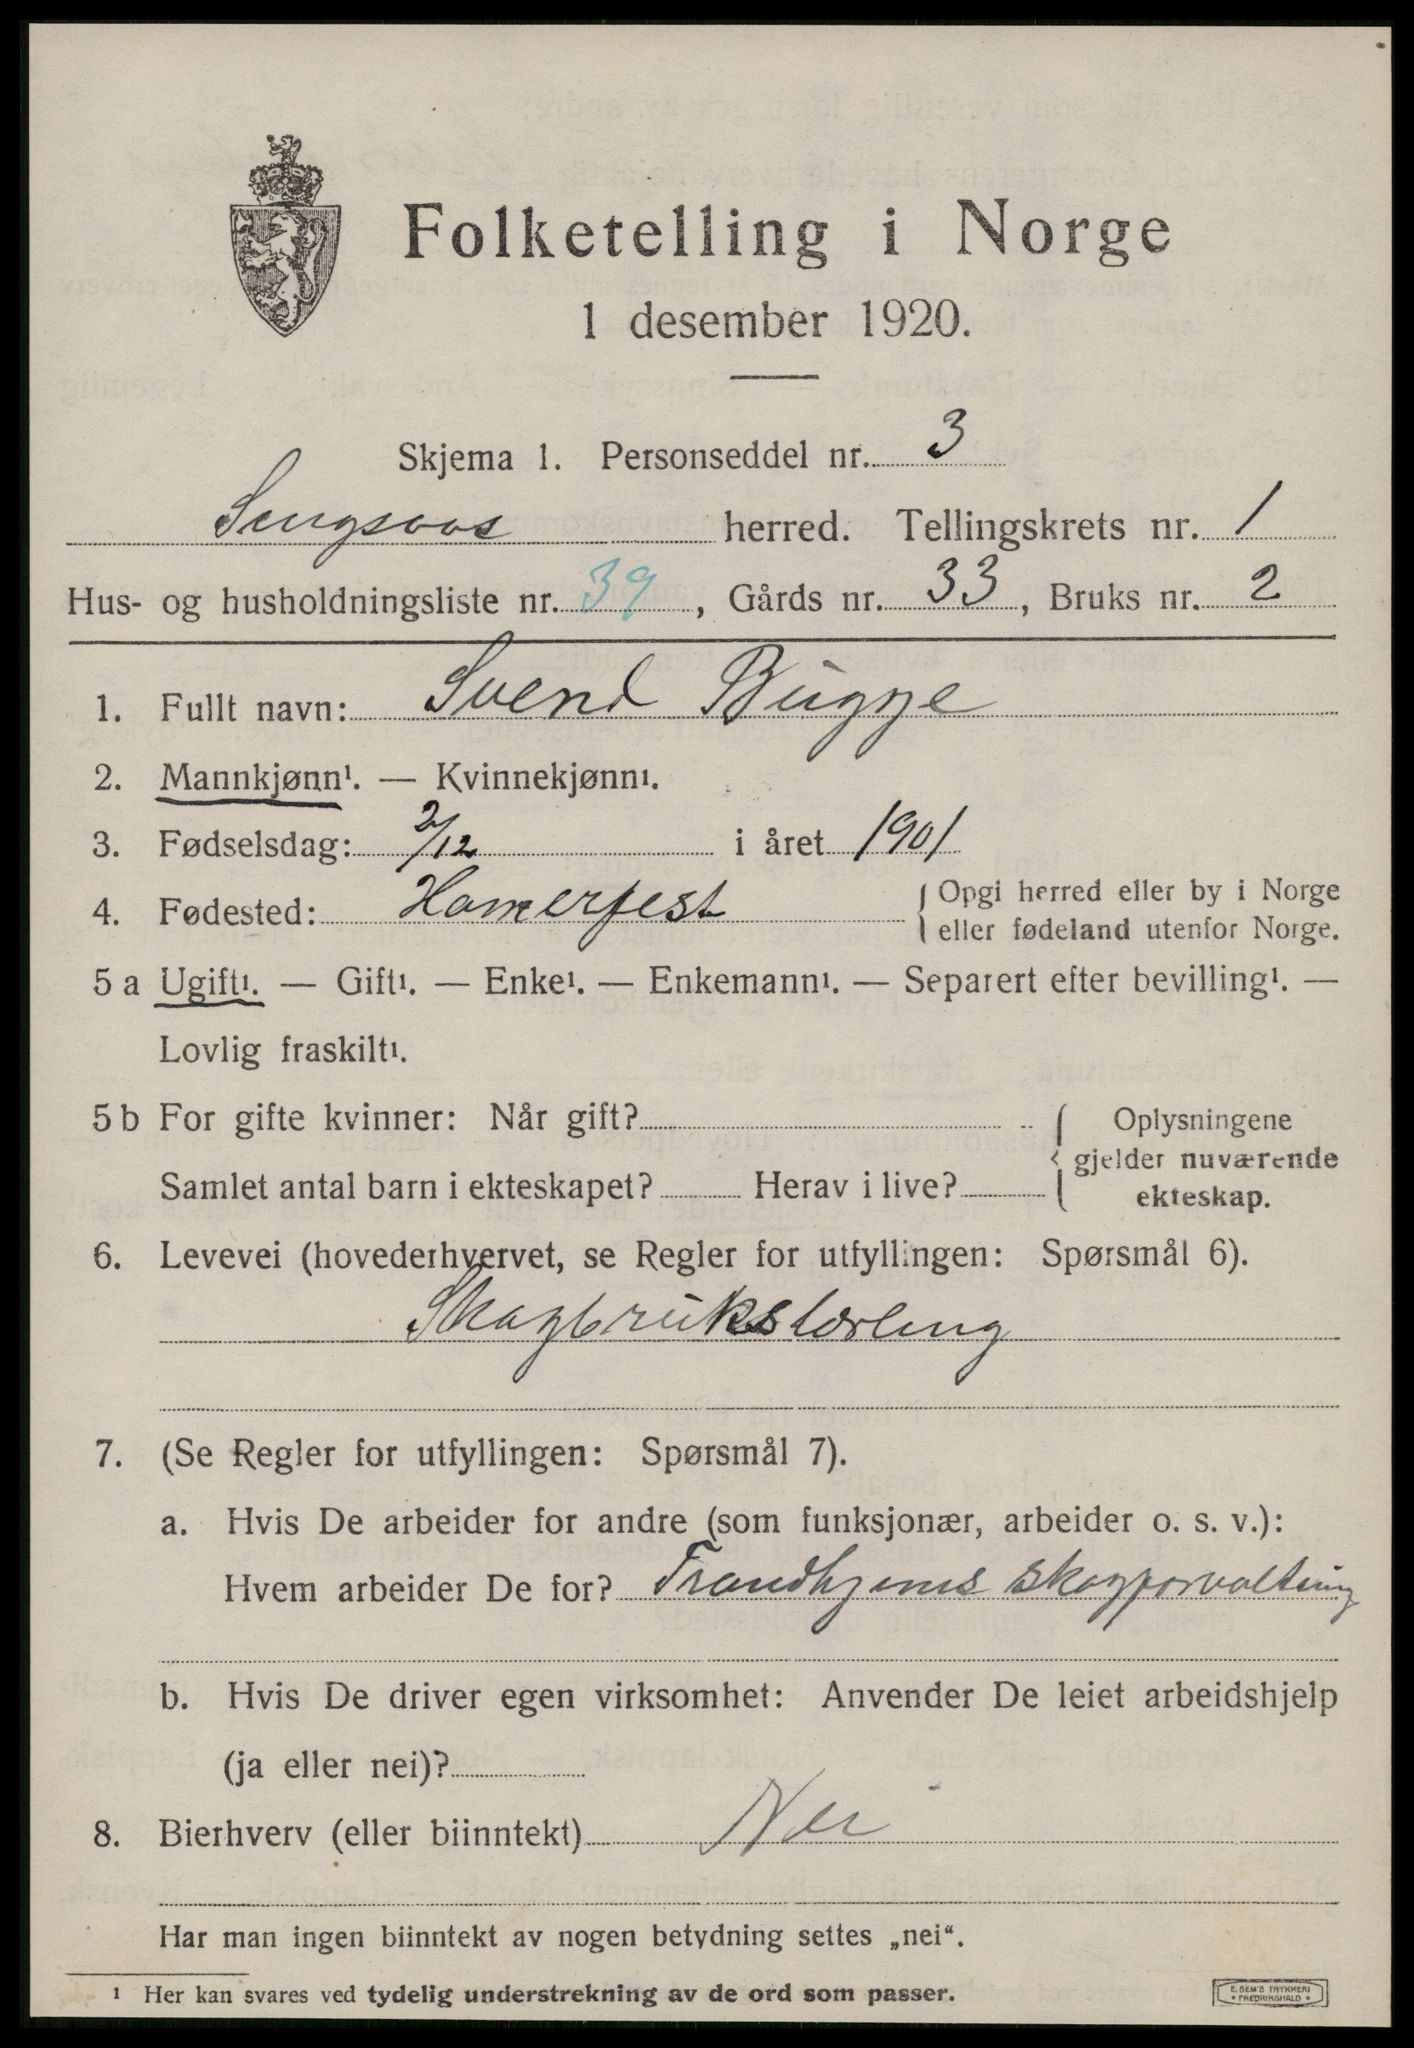 Folketelling i Norge
1 desember 1920.
Skjema 1. Personseddel nr. 3
Sengsaas herred. Tellingskrets nr. 1
Hus- og husholdningsliste nr. 39, Gårds nr. 33, Bruks nr. 2
1. Fullt navn: Svend Bugge
2. Mannkjønn¹. — Kvinnekjønn¹.
3. Fødselsdag: 2/12 i året 1901
4. Fødested: Hamerfest { Opgi herred eller by i Norge
eller fødeland utenfor Norge.
5 a Ugift¹. — Gift¹. — Enke¹. — Enkemann¹. — Separert efter bevilling¹. —
Lovlig fraskilt¹.
5 b For gifte kvinner: Når gift? { Oplysningene
gjelder nuværende
Samlet antal barn i ekteskapet? Herav i live?
ekteskap.
6. Levevei (hovederhvervet, se Regler for utfyllingen: Spørsmål 6).
Skogbrukslærling
7. (Se Regler for utfyllingen: Spørsmål 7).
a. Hvis De arbeider for andre (som funksjonær, arbeider o. s. v.):
Hvem arbeider De for? Trondhjems skogforvaltning
b. Hvis De driver egen virksomhet: Anvender De leiet arbeidshjelp
(ja eller nei)?
8. Bierhverv (eller biinntekt) Nei
Har man ingen biinntekt av nogen betydning settes „nei“.
¹ Her kan svares ved tydelig understrekning av de ord som passer.
E. SEM'S TRYKKERI
• FREDRIKSHALD •